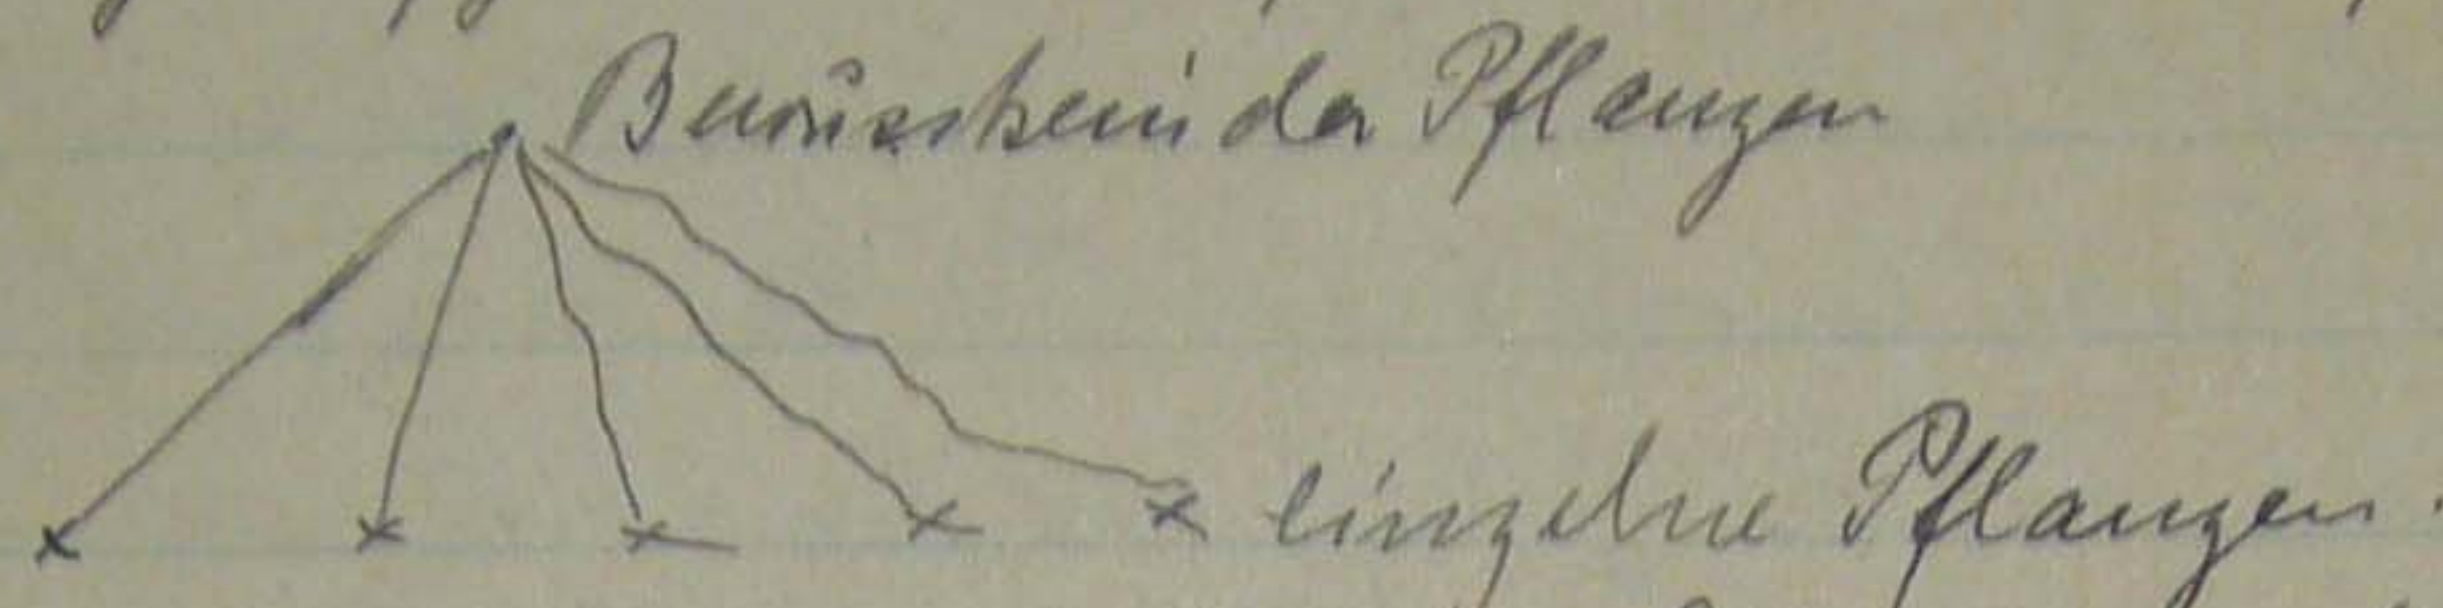 Bewusstsein der Pflanzen
einzelne Pflanzen.